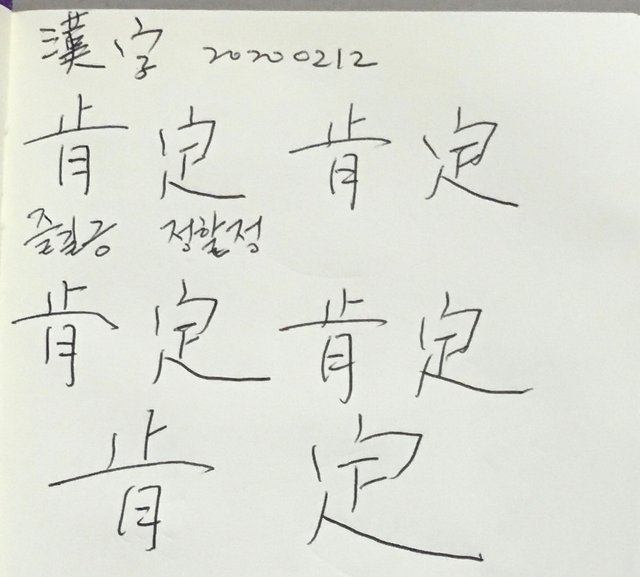 漢字 20200212
肯定 肯定
즐길긍 정할정
肯定 肯定
肯定